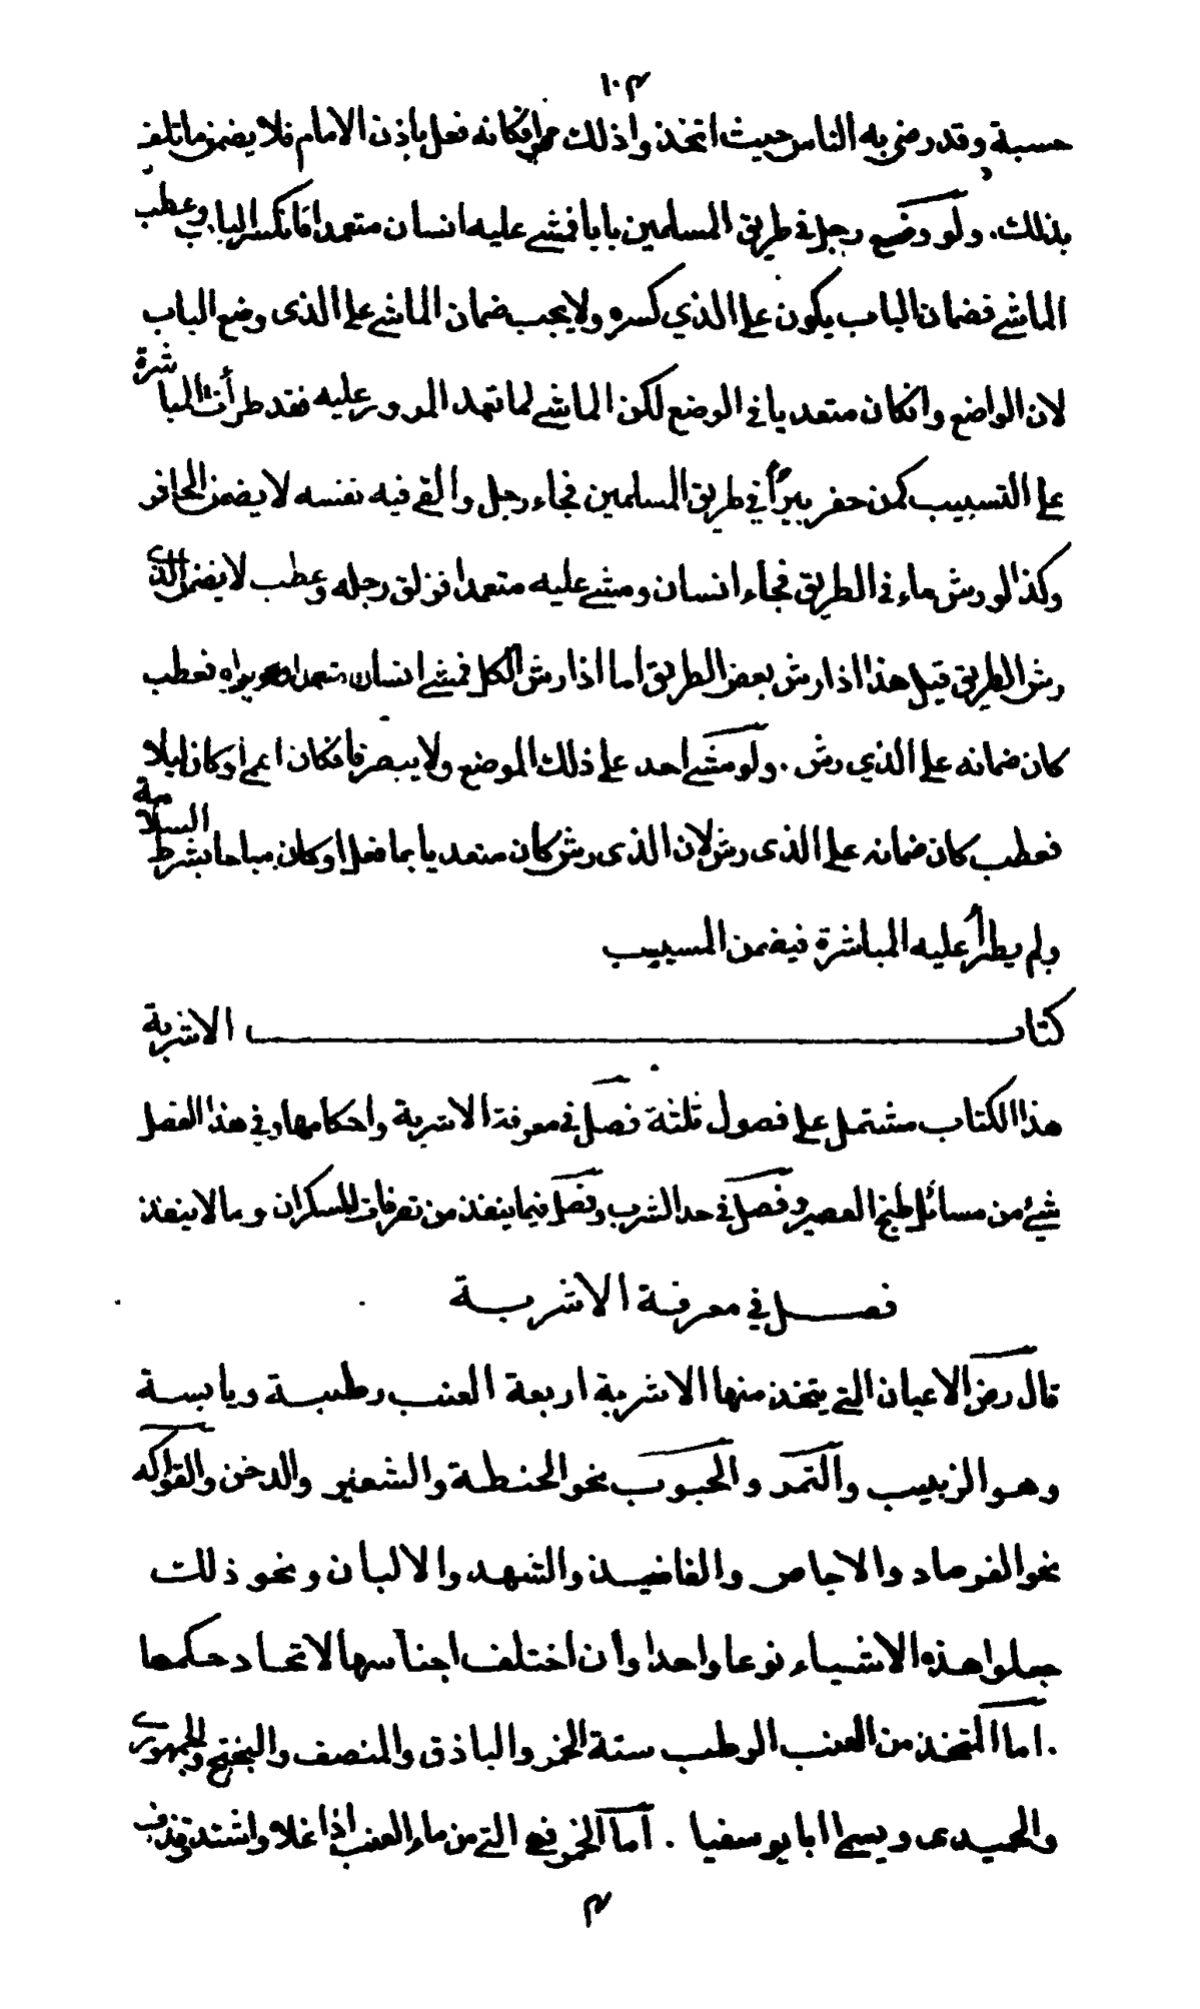 ١٠٣
حسبة وقد رضى به الناس حيث اتخذوا ذلك فكانه فعل باذن الامام فلا يضمن ما تلف
بذلك . ولو وضع رجل في طريق المسلمين بابا فمشى عليه انسان متعمدا فانكسر الباب وعطب
الماشي فضمان الباب يكون على الذي كسره ولا يجب ضمان الماشي على الذى وضع الباب
لان الواضع وان كان متعديا في الوضع لكن الماشي لما تعمد المرور عليه فقد طرأت المباشرة
على التسبيب كمن حفر بيرًا في طريق المسلمين فجاء رجل والقى فيه نفسه لا يضمن الحافر
وكذا لو رش ماء في الطريق فجاء انسان ومشى عليه متعمدا فزلق رجله وعطب لا يضمن الذي
رش الطريق قيل هذا اذا رش بعض الطريق اما اذا رش الكل فمشى انسان متعمدا فعطب
كان ضمانه على الذي رش . ولو مشى احد على ذلك الموضع ولا يبصر فا فكان اعمى او كان ليلا
فعطب كان ضمانه على الذى رش لان الذى رش كان متعديا بما فعل او كان مباحا بشرط السلامة
ولم يطرأ عليه المباشرة فيضمن المسبب
كتاب الاشربة
هذا الكتاب مشتمل على فصول ثلثة فصل في معرفة الاشربة واحكامها وفي هذا الفصل
شيئ من مسائل طبخ العصير وفصل في حد الشرب وفصل فيما ينفذ من تصرفات السكران وما لا ينفذ
فصل في معرفة الاشربة
قال رض الاعيان التي يتخذ منها الاشربة اربعة العنب رطبة ويابسة
وهو الزبيب والتمر والحبوب نحو الحنطة والشعير والدخن والفواكه
نحو الفرصاد والاجاص والفانيذ والشهد والالبان ونحو ذلك
جعلوا هذه الاشياء نوعا واحدا وان اختلف اجناسها لاتحاد حكمها
. اما المتخذ من العنب الرطب ستة الخمر والباذق والمنصف والبختج والجمهورى
والحميدى ويسمى ابا يوسفيا . اما الخمر فهي التي من ماء العنب اذا غلا واشتد وقذف